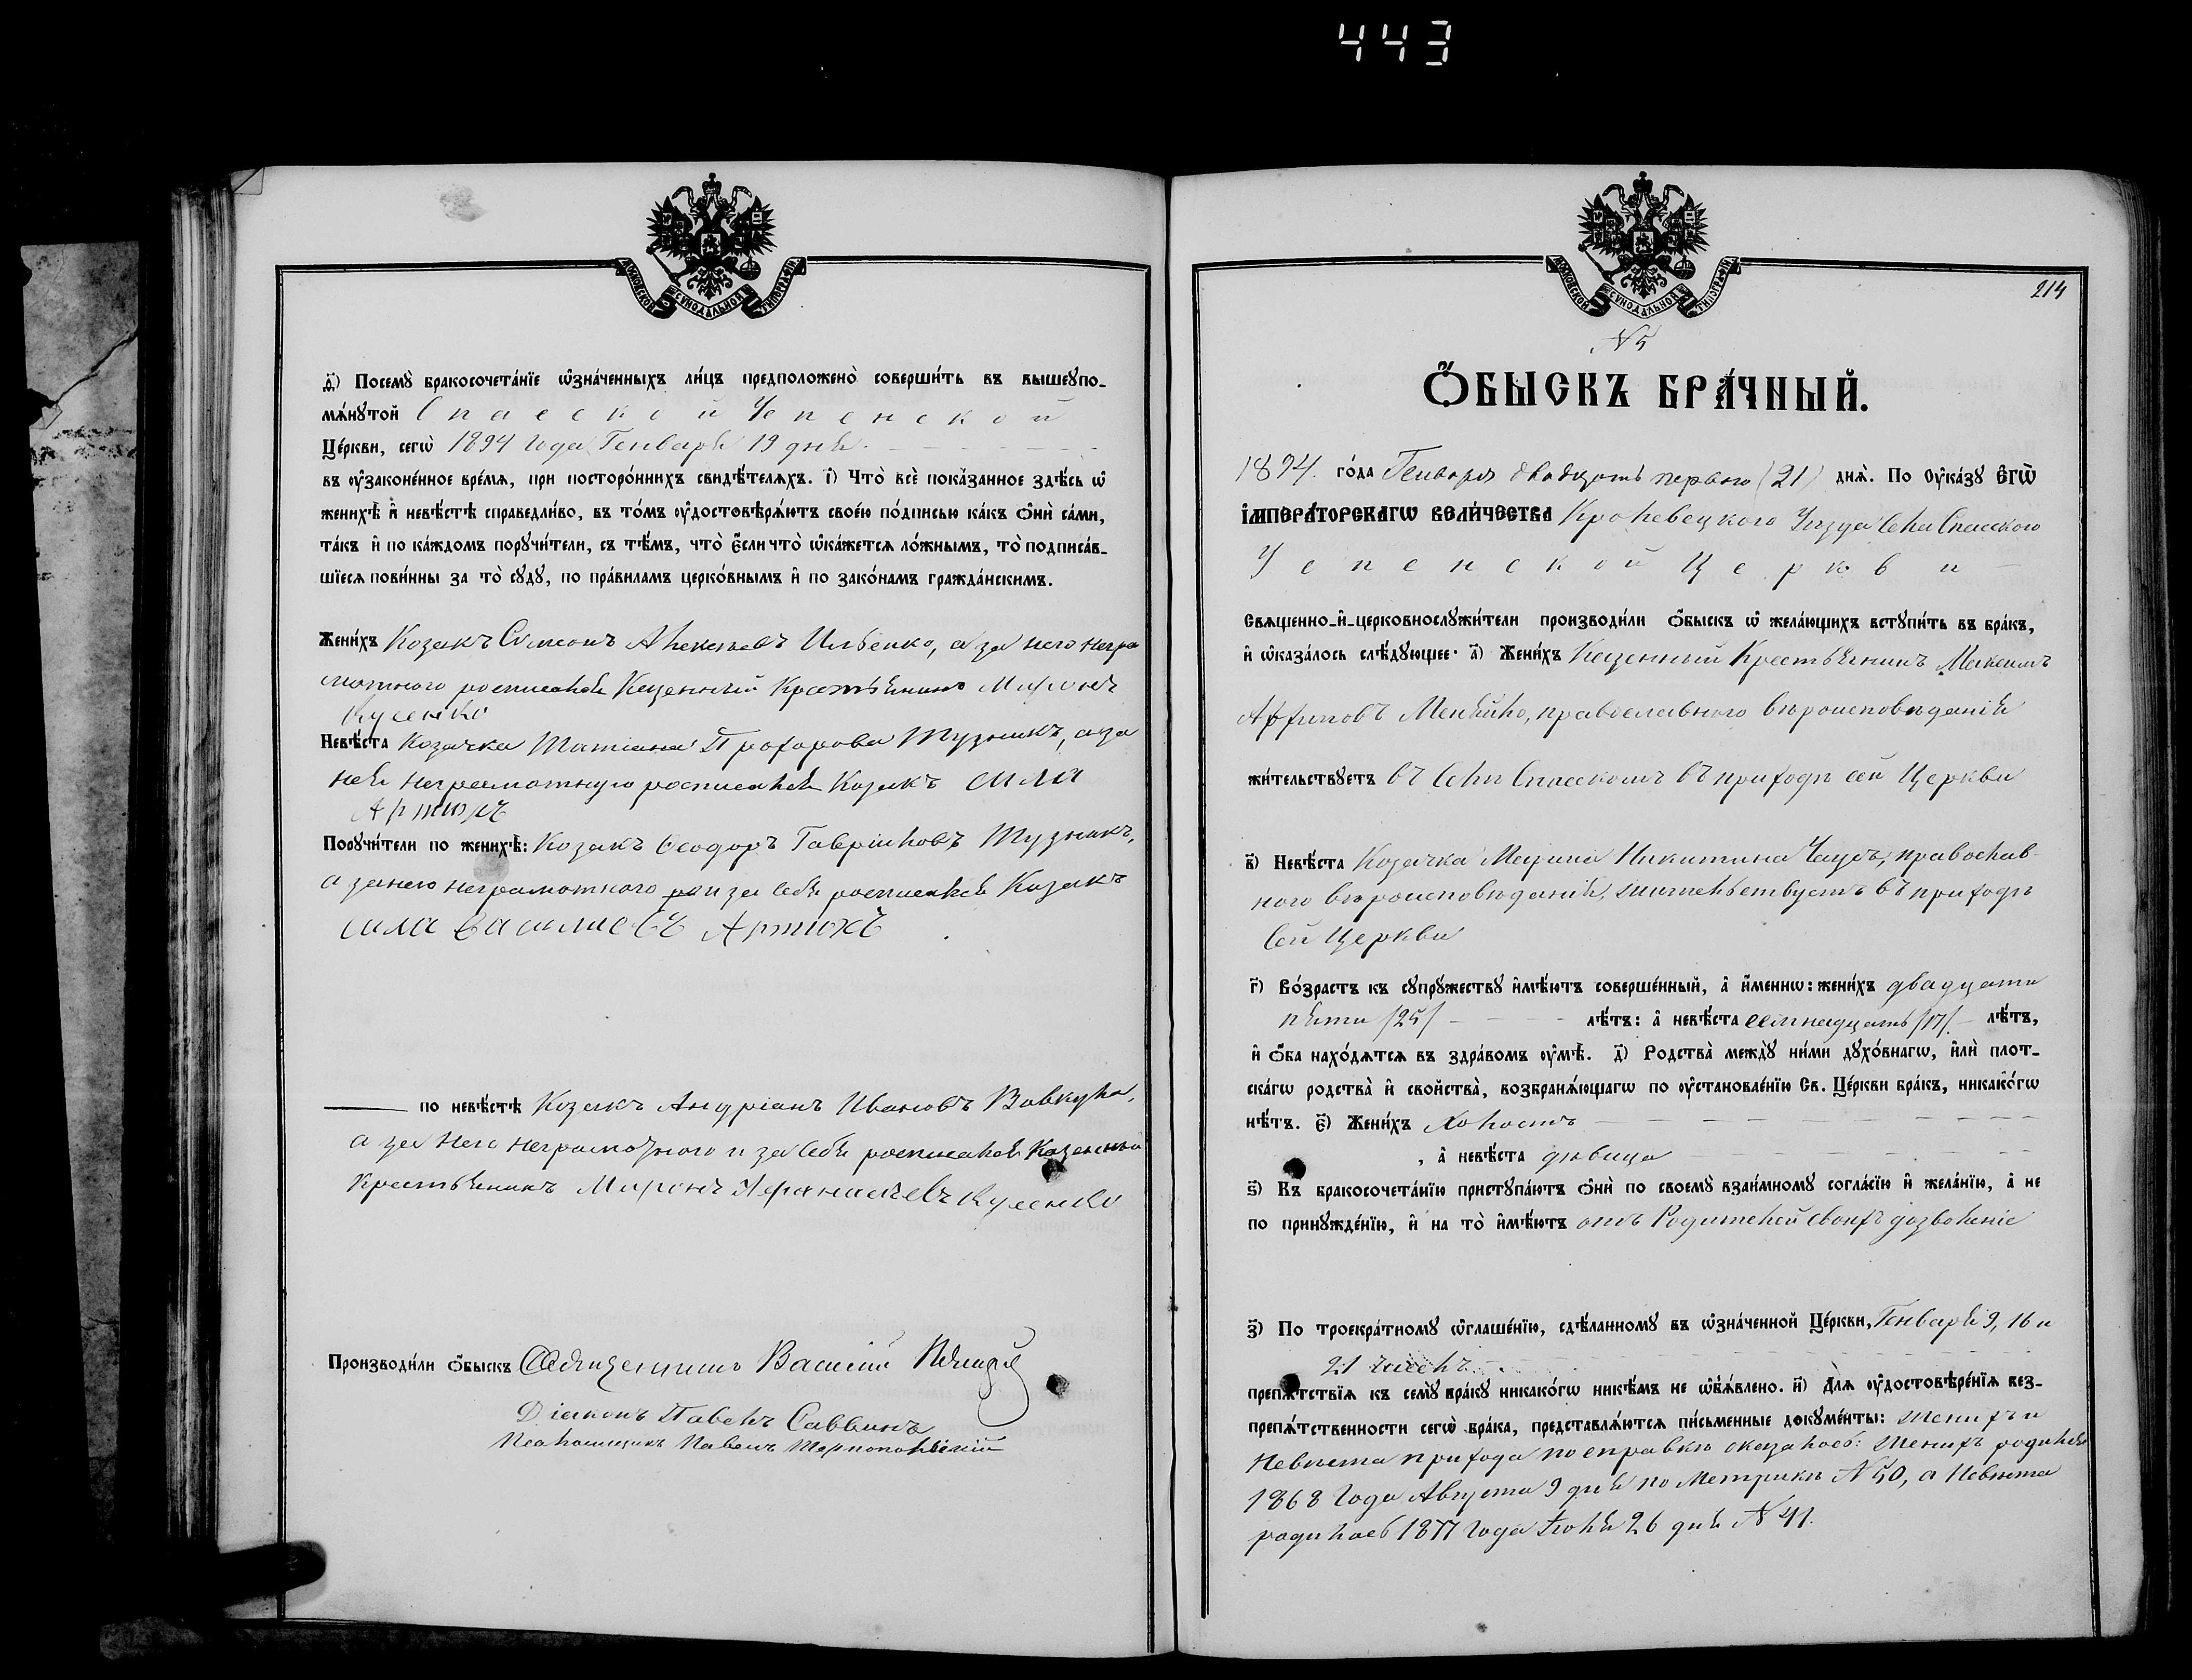 443
МОСКОВСКОЙ СѴНОДАЛЬНОЙ ТИПОГРАФІИ
д҃) Посемꙋ̀ бракосочета́нїе ѡ҆зна́ченныхъ ли́цъ предположено̀ соверши́ть въ вышеꙋпо-
мѧ́нꙋтой Спасской Успенской
Це́ркви, сегѡ̀ 1894 года Генваря 19 дня.
въ ᲂу҆законе́нное вре́мѧ, при посторо́ннихъ свидѣ́телѧхъ. і҃) Что̀ всѐ пока́занное здѣ́сь ѡ҆
женихѣ̀ и҆ невѣ́стѣ справедли́во, въ то́мъ ᲂу҆достовѣрѧ́ютъ свое́ю по́дписью ка́къ ѻ҆нѝ са́ми,
та́къ и҆ по ка́ждомъ порꙋчи́тели, съ тѣ́мъ, что̀ є҆́сли что̀ ѡ҆ка́жетсѧ ло́жнымъ, то̀ подписа́в-
шїесѧ пови́нны за то̀ сꙋдꙋ̀, по пра́виламъ церко́внымъ и҆ по зако́намъ гражда́нскимъ.
Жени́хъ Козакъ Симеонъ Алексѣевъ Ильенко, а за него негра
мотнаго росписался Казенный Крестьянинъ Миронъ
Кусенко
Невѣ́ста Козачка Татіана Прохорова Тузникъ, а за
нея неграмотную росписался Козакъ Сила
Артюхъ
Порꙋчи́тели по женихѣ̀: Козакъ Ѳеодоръ Гавріиловъ Тузникъ,
а за него неграмотнаго и за себя росписался Козакъ
Сила Василиевъ Артюхъ
по невѣ́стѣ Козакъ Андріанъ Ивановъ Вовкула,
а за него неграмотного и за себя росписался Казенный
Крестьянинъ Миронъ Афанасьевъ Кусенко
Производи́ли ѻ҆́быскъ Священникъ Василій
Діаконъ Павелъ Саввинъ
Псаломщикъ Павелъ Тарнопольскій
МОСКОВСКОЙ СѴНОДАЛЬНОЙ ТИПОГРАФІИ
214
N 5
Ѻ҆́БЫСКЪ БРА́ЧНЫЙ.
1894. го́да Генваря двадцать перваго (21) днѧ̀. По ᲂу҆ка́зꙋ Є҆гѡ̀
І҆мпера́торскагѡ Вели́чества Кролевецкого Уѣзда Села Спасского
Успенской Церкви
Свѧщенно-и҆-церковнослꙋжи́тели производи́ли ѻ҆́быскъ ѡ҆ жела́ющихъ встꙋпи́ть въ бра́къ,
и҆ ѡ҆каза́лось слѣ́дꙋющее: а҃) Жени́хъ Казенный Крестьянинъ Максимъ
Меняйло, православного вѣроисповѣданія
жи́тельствꙋетъ въ Селѣ Спасскомъ въ приходѣ сей Церкви
в҃) Невѣ́ста Козачка Марина Никитина Чаусъ, православ-
ного вѣроисповѣданія, жительствуетъ въ приходѣ
Сей Церкви
г҃) Во́зрастъ къ сꙋпрꙋ́жествꙋ и҆мѣ́ютъ соверше́нный, а҆ и҆́меннѡ: жени́хъ двадцати
пяти /25/ лѣ́тъ: а҆ невѣ́ста семнадцать /17/ лѣ́тъ,
и҆ ѻ҆́ба нахо́дѧтсѧ въ здра́вомъ ᲂу҆мѣ̀. д҃) Родства̀ междꙋ̀ ни́ми дꙋхо́внагѡ, и҆лѝ плот-
ска́гѡ родства̀ и҆ свойства̀, возбранѧ́ющагѡ по ᲂу҆становле́нїю Св. Це́ркви бра́къ, никако́гѡ
нѣ́тъ. є҃) Жени́хъ холостъ
, а҆ невѣ́ста дѣвица
ѕ҃) Къ бракосочета́нїю пристꙋпа́ютъ ѻ҆нѝ по своемꙋ̀ взаи́мномꙋ согла́сїю и҆ жела́нїю, а҆ не
по принꙋжде́нїю, и҆ на то̀ и҆мѣ́ютъ отъ Родителей своихъ дозволеніе
з҃) По троекра́тномꙋ ѡ҆глаше́нїю, сдѣ́ланномꙋ въ ѡ҆зна́ченной Це́ркви, Генваря 9, 16 и
21 чиселъ
препѧ́тствїѧ къ семꙋ̀ бра́кꙋ никако́гѡ никѣ́мъ не ѡ҆б̾ѧ́влено. и҃) Длѧ̀ ᲂу҆достовѣре́нїѧ без-
препѧ́тственности сегѡ̀ бра́ка, представлѧ́ютсѧ пи́сьменные докꙋме́нты: Женихъ и
Невѣста прихода по справкѣ оказалось: Женихъ родился
1868 Года Августа 9 дня по Метрикѣ N 50, а Невѣста
родилась 1877 Года Іюля 26 дня N 41.